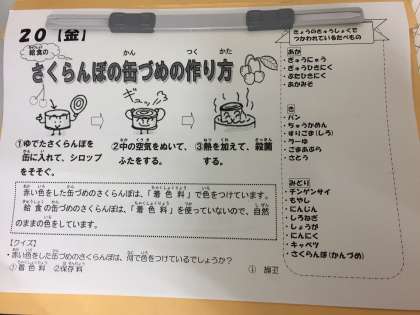 20【金】
給食の
さくらんぼの缶づめの作り方
ギュッ
①ゆでたさくらんぼを
缶に入れて、シロップ
をそそぐ。
②中の空気をぬいて、
ふたをする。
③熱を加えて、殺菌
する。
赤い色をした缶づめのさくらんぼは、「着色料」で色をつけています。
給食の缶づめのさくらんぼは、「着色料」を使っていないので、自然
のままの色をしています。
【クイズ】
・赤い色をした缶づめのさくらんぼは、何で色をつけているでしょうか?
①着色料 ②保存料
きょうのきゅうしょくで
つかわれているたべもの
あか
・ぎゅうにゅう
・ぎゅうひきにく
・ぶたひきにく
・あかみそ
き
・パン
・ちゅうかめん
・すりごま(しろ)
・ラーゆ
・ごまあぶら
・さとう
みどり
・チンゲンサイ
・もやし
・にんじん
・しろねぎ
・しょうが
・にんにく
・キャベツ
・さくらんぼ(かんづめ)